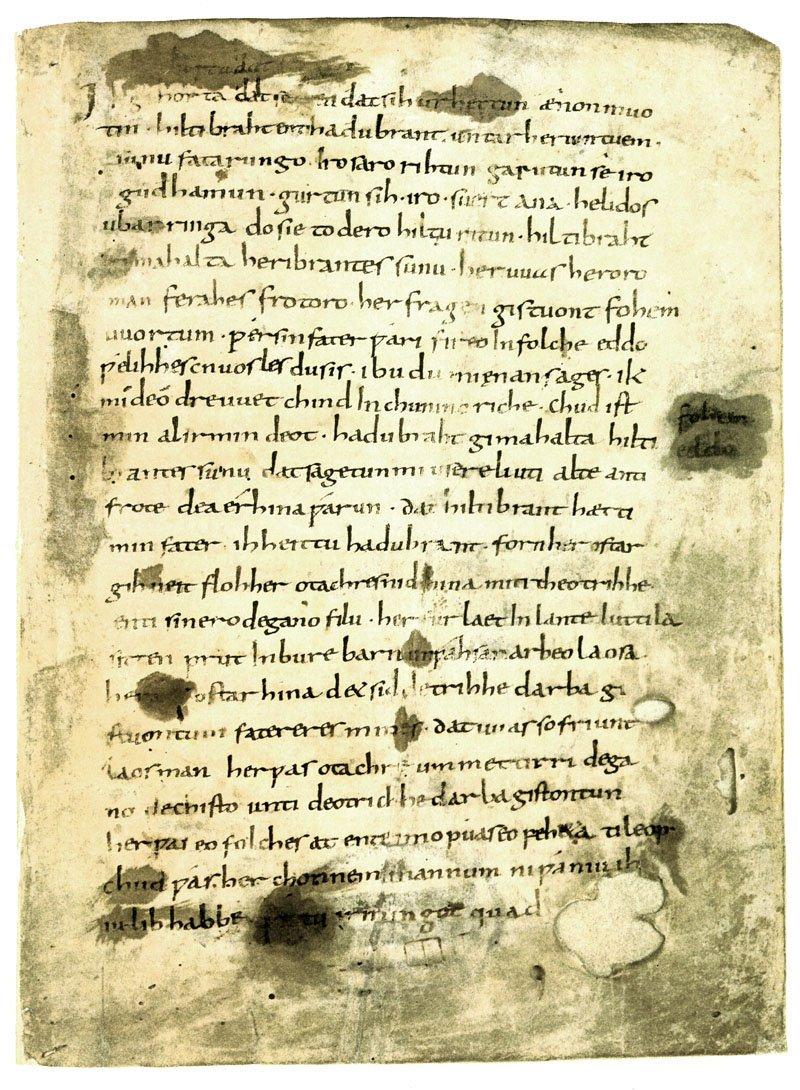 horta dat dat sih urhettun ænon muo
tin · hiltibraht enti hadubrant · untar heriuntuem ·
sunu fatarungo · iro saro rihtun garutun sé iro
gudhamun · gurtun sih · iro · suert ana · helidos
ubar ringa do sie to dero hiltu ritun · hiltibraht
gimahalta heribrantes sunu · her uuas heroro
man ferahes frotoro · her fragen gistuont fohem
uuortum · ƿer sin fater ƿari fireo In folche eddo
ƿelihhes cnuosles du sis · ibu du mi enan sages · ik
mi deó dre uuet chind In chuninc riche · chud ist
min al irmin deot · hadubraht gimahalta hilti
brantes sunu dat sagetun mi usere liuti alte anti
frote dea érhina ƿarun · dat hiltibrant hætti
min fater · ih heittu hadubrant · forn her ostar
gihueit floh her otachres nid hina miti theotrihhe
enti sinero degano filu · her furlaet In lante luttila
sitten prut In bure barn unƿahsan arbeo laosa
ostar hina det sid detrihhe darba gi
stuontum fatereres mines · dat uuas so friunt
laos man her ƿas otachre ummettirri dega
no dechisto unti deotrichhe darba gistontun
her ƿas eo folches at ente imo ƿuas eo peheta ti leop
chud ƿas · her chonnem mannum ni ƿaniu ih
iu lib habbe irmingot quad
fohem
eddo